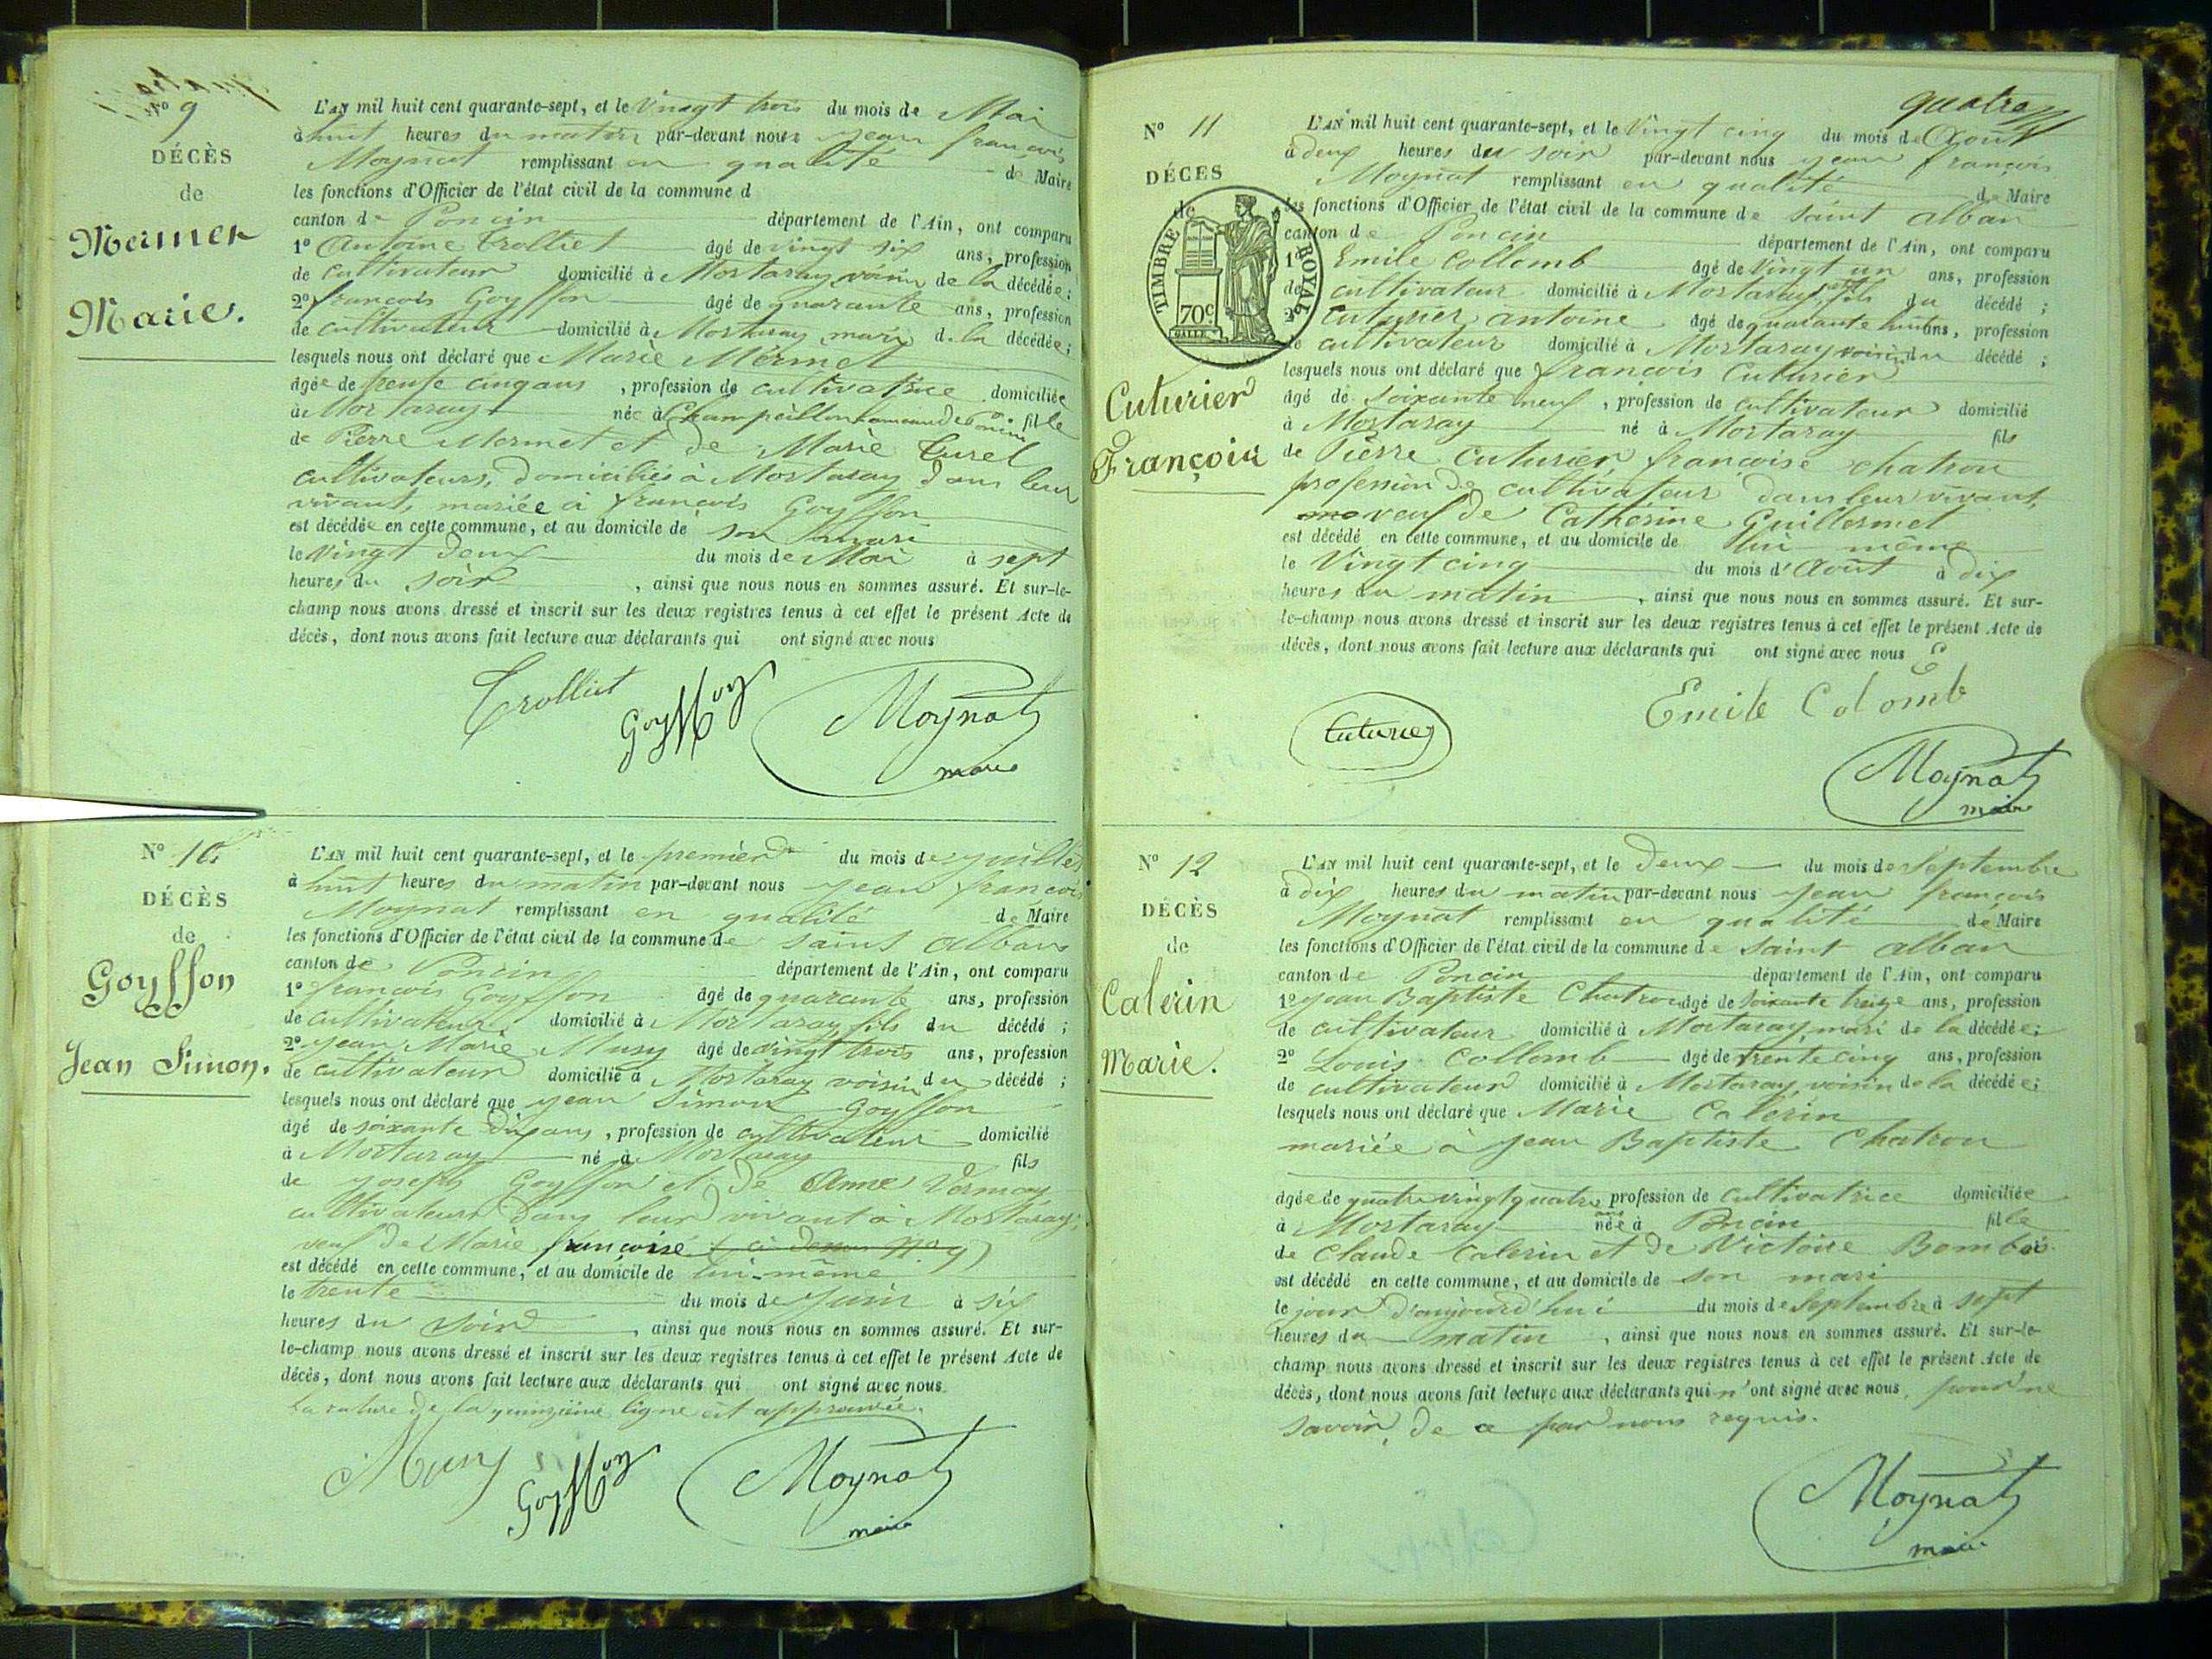 Nº 9
DÉCÈS
de
Mermet
Marie.
L'AN mil huit cent quarante-sept, et le Vingt trois du mois de Mai
à huit heures du matin par-devant nous jean françois
Moynat remplissant en qualité de Maire
les fonctions d'Officier de l'état civil de la commune d
canton de Poncin département de l'Ain, ont comparu
1º Antoine Trolliet âgé de vingt six ans, profession
de cultivateur domicilié à Mortaray voisin de la décédée;
2º françois Goyffon âgé de quarante ans, profession
de cultivateur domicilié à Mortaray mari de la décédée;
lesquels nous ont déclaré que Marie Mermet
âgée de trente cinq ans, profession de cultivatrice domiciliée
à Mortaray née à Champeillon hameau de Poncin fille
de Pierre Mermet et de Marie Curel
cultivateurs, domiciliés à Mortaray dans leur
vivant, mariée à françois Goyffon
est décédée en cette commune, et au domicile de son mari
le vingt deux du mois de Mai à sept
heures du soir, ainsi que nous nous en sommes assuré. Et sur-le-
champ nous avons dressé et inscrit sur les deux registres tenus à cet effet le présent Acte de
décès, dont nous avons fait lecture aux déclarants qui ont signé avec nous
Trolliet
Goyffon
Moynat
maire
Nº 10
DÉCÈS
de
Goyffon
Jean Simon.
L'AN mil huit cent quarante-sept, et le premier du mois de juillet
à huit heures du matin par-devant nous jean françois
Moynat remplissant en qualité de Maire
les fonctions d'Officier de l'état civil de la commune de saint alban
canton de Poncin département de l'Ain, ont comparu
1º françois Goyffon âgé de quarante ans, profession
de cultivateur domicilié à Mortaray fils du décédé;
2º jean Marie Musy âgé de vingt trois ans, profession
de cultivateur domicilié à Mortaray voisin du décédé;
lesquels nous ont déclaré que jean Simon Goyffon
âgé de soixante dix ans, profession de cultivateur domicilié
à Mortaray né à Mortaray fils
de joseph Goyffon et de Anne Vernay
cultivateurs dans leur vivant à Mortaray,
veuf de Marie françoise ( ci dessus nº 9)
est décédé en cette commune, et au domicile de lui-même
le trente du mois de juin à six
heures du soir, ainsi que nous nous en sommes assuré. Et sur-
le-champ nous avons dressé et inscrit sur les deux registres tenus à cet effet le présent Acte de
décès, dont nous avons fait lecture aux déclarants qui ont signé avec nous.
La rature de la quinzième ligne est approuvée.
Musy
Goyffon
Moynat
maire
quatre
Nº 11
DÉCÈS
de
TIMBRE ROYAL
70c
Cuturier
François
L'AN mil huit cent quarante-sept, et le Vingt cinq du mois de Août
à deux heures du soir par-devant nous jean françois
Moynat remplissant en qualité de Maire
les fonctions d'Officier de l'état civil de la commune de saint alban
canton de Poncin département de l'Ain, ont comparu
1º Emile Collomb âgé de vingt un ans, profession
de cultivateur domicilié à Mortaray, fils du décédé;
2º Cuturier antoine âgé de quarante huit ans, profession
de cultivateur domicilié à Mortaray voisin du décédé;
lesquels nous ont déclaré que françois Cuturier
âgé de soixante neuf, profession de cultivateur domicilié
à Mortaray né à Mortaray fils
de Pierre Cuturier, françoise chatron
profession de cultivateur dans leur vivant,
veuf de Cathérine Guillermet
est décédé en cette commune, et au domicile de lui même
le Vingt cinq du mois d'Août à dix
heures du matin, ainsi que nous nous en sommes assuré. Et sur-
le-champ nous avons dressé et inscrit sur les deux registres tenus à cet effet le présent Acte de
décès, dont nous avons fait lecture aux déclarants qui ont signé avec nous E
Emile Colomb
Cuturier
Moynat
maire
Nº 12
DÉCÈS
de
Calerin
Marie.
L'AN mil huit cent quarante-sept, et le Deux du mois de Septembre
à dix heures du matin par-devant nous jean françois
Moynat remplissant en qualité de Maire
les fonctions d'Officier de l'état civil de la commune de saint alban
canton de Poncin département de l'Ain, ont comparu
1º jean Baptiste Chatron âgé de soixante treize ans, profession
de cultivateur domicilié à Mortaray mari de la décédée;
2º Louis Collomb âgé de trente cinq ans, profession
de cultivateur domicilié à Mortaray, voisin de la décédée;
lesquels nous ont déclaré que Marie Calerin
mariée à jean Baptiste Chatron
âgée de quatre vingt quatre ans profession de cultivatrice domiciliée
à Mortaray née à Poncin fille
de Claude Calerin et de Victoire Bombois
est décédé en cette commune, et au domicile de son mari
le jour d'aujourd'hui du mois de Septembre à sept
heures du matin, ainsi que nous nous en sommes assuré. Et sur-le-
champ nous avons dressé et inscrit sur les deux registres tenus à cet effet le présent Acte de
décès, dont nous avons fait lecture aux déclarants qui n'ont signé avec nous, pour ne
savoir, de ce par nous requis.
Moynat
maire